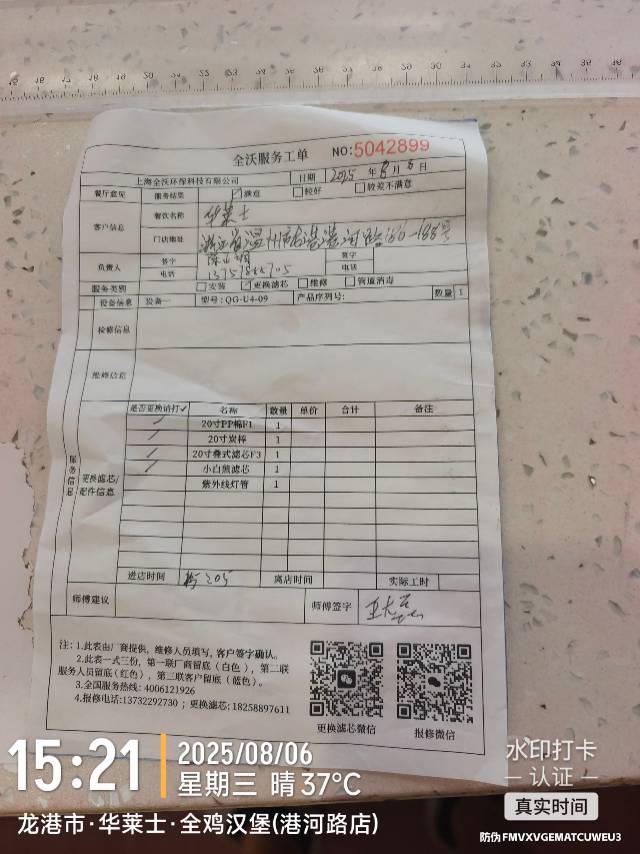 全沃服务工单 NO:5042899
上海全沃环保科技有限公司 日期 2025 年 8 月 6 日
餐厅意见 服务结果 满意 较好 较差不满意
客户信息 餐饮名称 华莱士
门店地址 浙江省温州市龙港港河路186-188号
负责人 签字 签字
电话 电话
服务类别 安装 更换滤芯 维修 管道消毒
设备信息 设备一 型号:QG-U4-09 产品序列号: 数量 1
检修信息
维修信息
服务信息
更换滤芯/配件信息
是否更换请打✓ 名称 数量 单价 合计 备注
✓ 20寸PP棉F1 1
✓ 20寸炭棒 1
✓ 20寸叠式滤芯F3 1
✓ 小白熊滤芯 1
紫外线灯管 1
进店时间 离店时间 实际工时
师傅建议 师傅签字
注:1.此表由厂商提供,维修人员填写,客户签字确认。
2.此表一式三份,第一联厂商留底(白色),第二联
服务人员留底(红色),第三联客户留底(蓝色)。
3.全国服务热线:4006121926
4.报修电话:13732292730;更换滤芯:18258897611
更换滤芯微信 报修微信
15:21 2025/08/06
星期三 晴 37°C
龙港市·华莱士·全鸡汉堡(港河路店)
水印打卡
认证
真实时间
防伪FMVXVGEMATCUWEU3